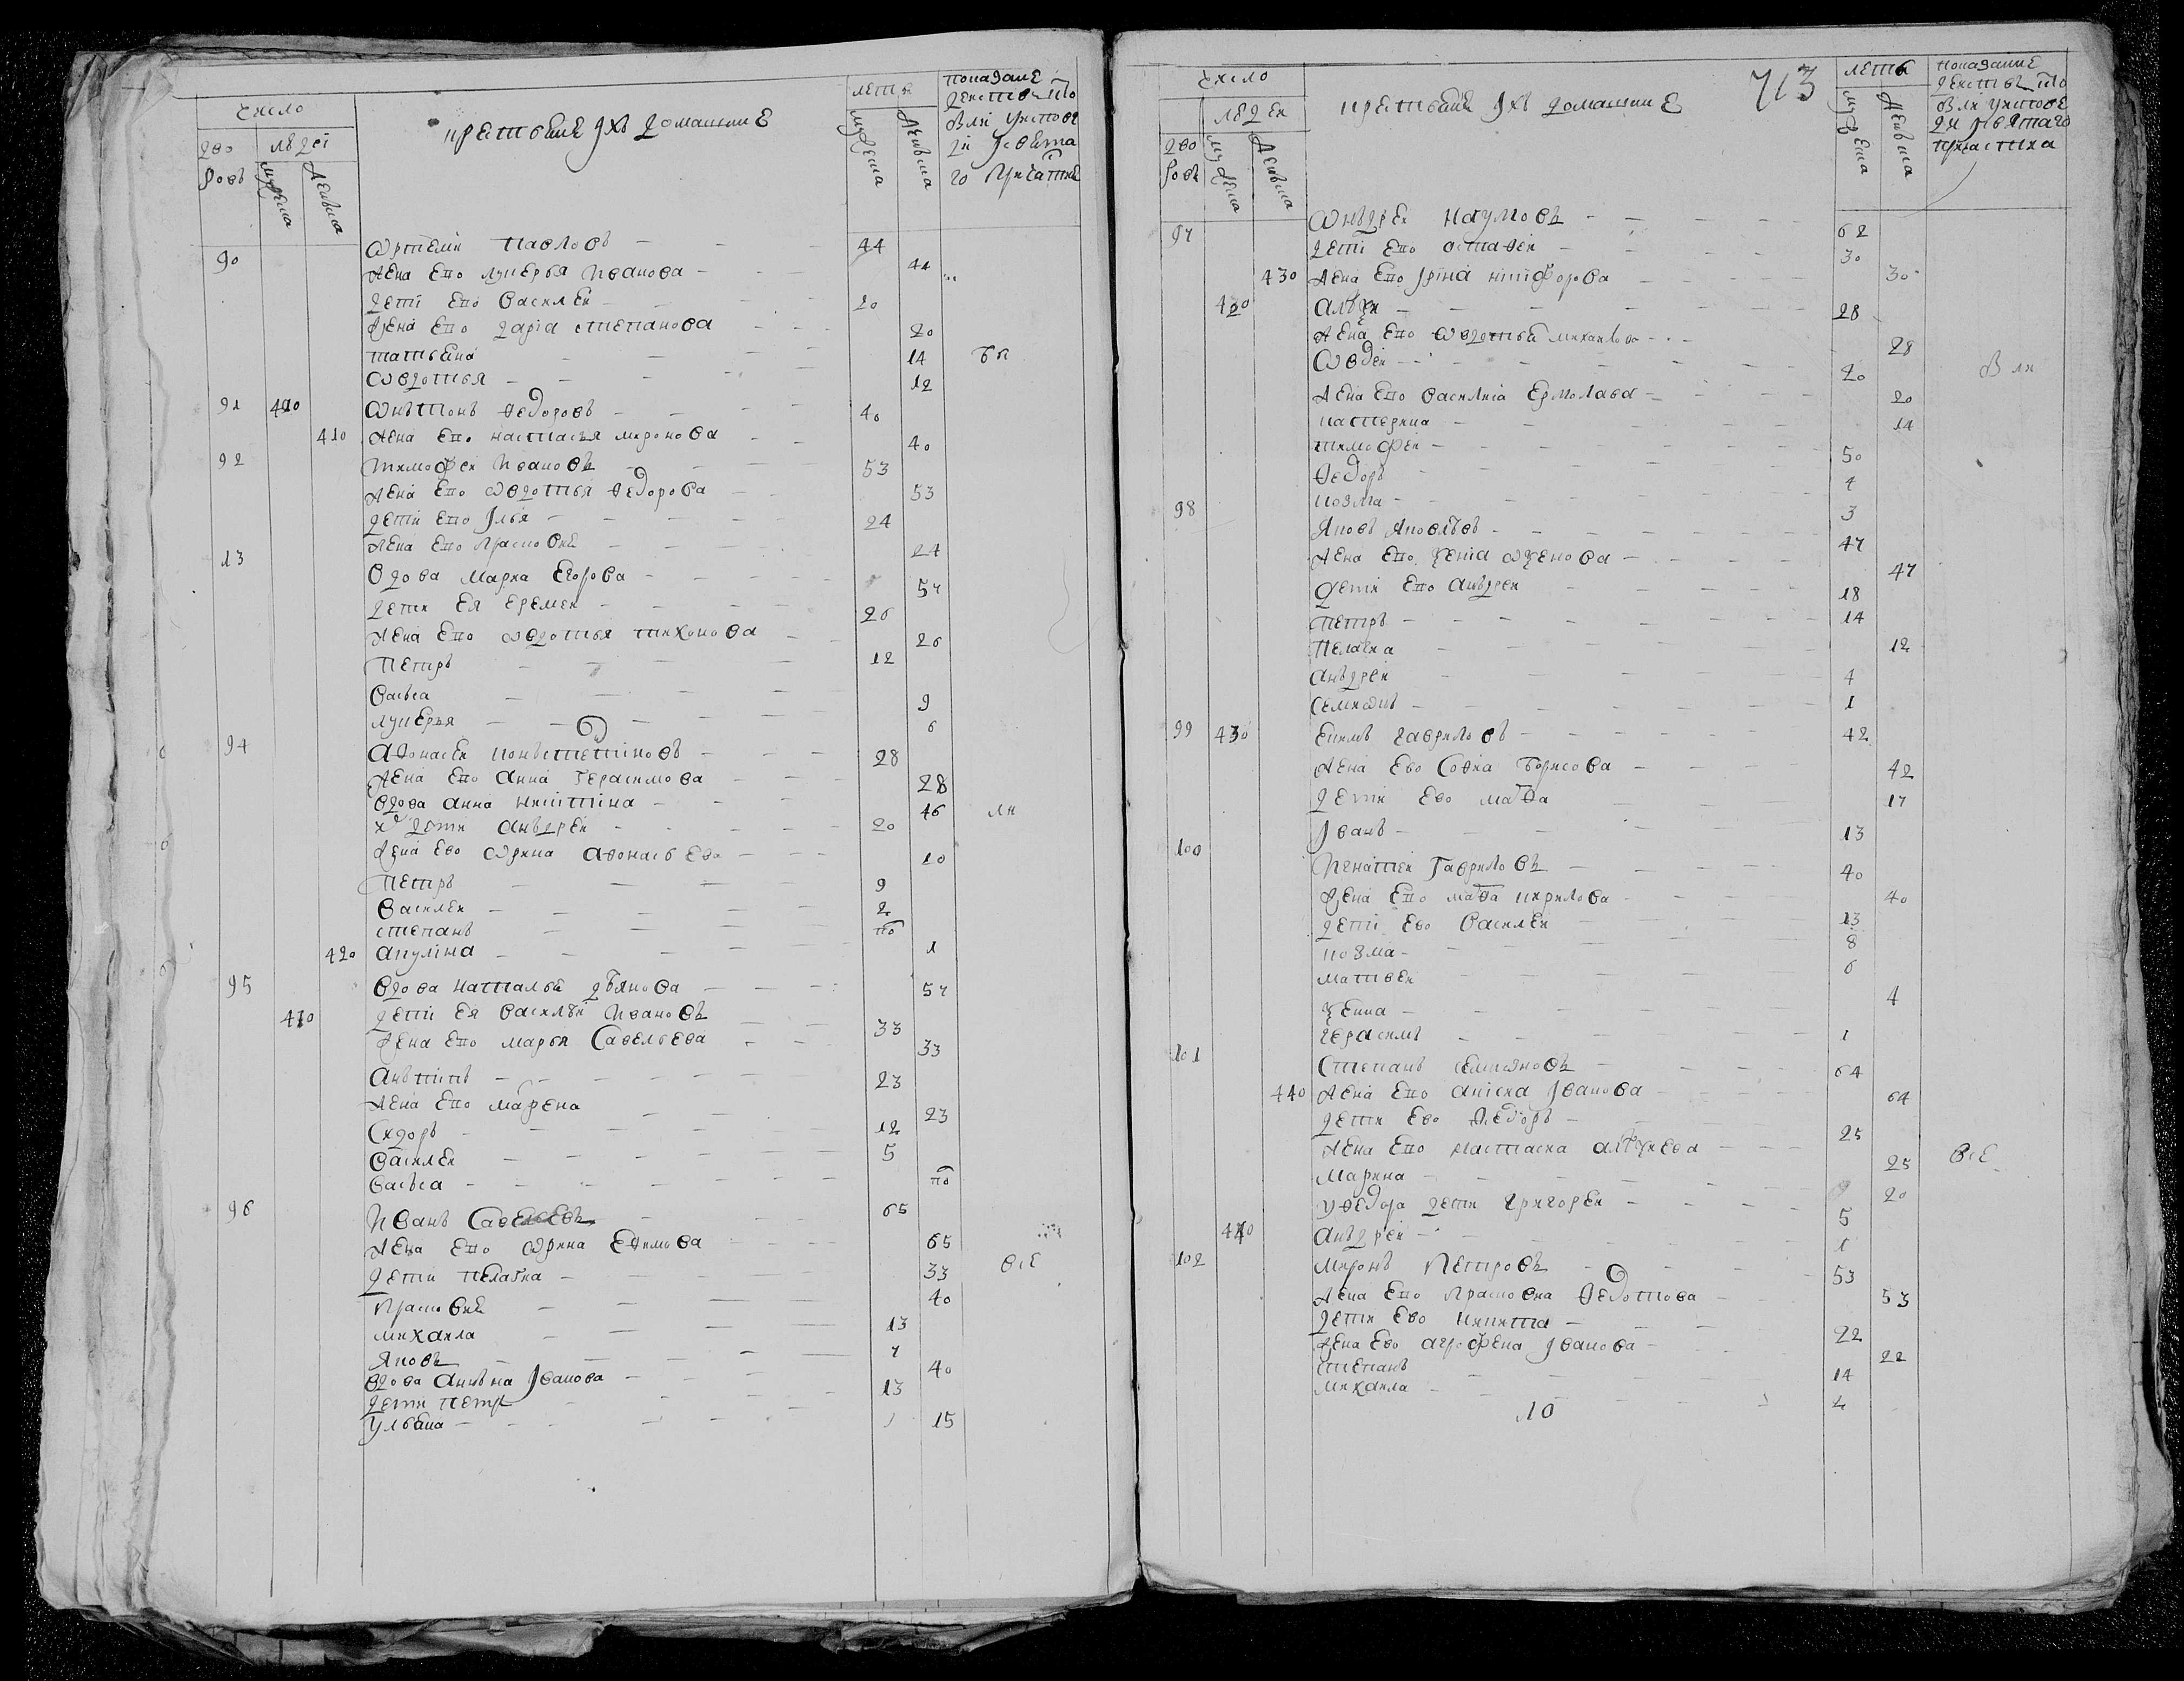 число
дворовъ
людеі
мужеска
женьска
крестьяне ихъ домашние
лета
мужеска
женьска
показание
действ что
были у исповеди
и святаго
причастие
90 Ортемей Павловъ 44
жена ево Лукерья Иванова 44
дети ево Василеи 20
жена ево Дарiа Степанова 20
Татьяна 14 бы
Овдотья 12
91 400 Онътонъ Федоровъ 40
410 жена ево Настасья Миронова 40
92 Тимофеи Ивановъ 53
жена ево Овдотья Федорова 53
дети ево Илья 24
жена ево Прасковья 24
13 вдова Марха Егорова 57
дети ея Еремеи 26
жена ево Овдотья Тихонова 26
Петръ 12
Васьса 9
Лукерья 6
94 Афонасеи Конъстетиновъ 28
жена ево Анна Герасимова 28
вдова Анна Никитина 46 ли
дети Анъдреи 20
жена ево Орина Афонасьева 20
Петръ 9
Василеи 2
Степанъ по
420 Акулина 1
95 вдова Наталья Дѣянова 57
410 дети ея Василѣи Ивановъ 33
жена ево Марья Савельева 33
Анътипъ 23
жена ево Марена 23
Сидоръ 12
Василеи 5
Васьса по
96 Иванъ Савельевъ 65
жена ево Орина Ефимова 65
дети Пелагиа 33 все
Прасковья 40
Михаила 13
Яковъ 7
вдова Анънна Иванова 40
дети Петръ 13
Ульяна 15
713
число
дворовъ
людеи
мужеска
женьска
крестьяне ихъ домашние
лета
мужеска
женьска
показание
действъ что
были у исповеди
и святаго
причастиа
97 Онъдреи Наумовъ 62
дети ево Остафеи 30
430 жена ево Ирина Никифорова 30
420 Алѣѯи 28
жена ево Овдотья Михаилова 28
Овдеи 20 были
жена ево Василиса Ермолава 20
Катерина 14
Тимофеи 50
Федоръ 4
Козма 3
98 Яковъ Яковлѣвъ 47
жена ево Ѯениа Оѯенова 47
дети ево Анъдреи 18
Петръ 14
Пелагиа 12
Анъдреи 4
Семионъ 1
99 430 Екимъ Гавриловъ 42
жена ево Софиа Борисова 42
дети ево Мафа 17
Иванъ 13
100 Игнатеи Гавриловъ 40
жена ево Мафа Кирилова 40
дети ево Василеи 13
Козма 8
Матвеи 6
Ѯениа 4
Герасимъ 1
101 Степанъ Семионовъ 64
440 жена ево Анисиа Иванова 64
дети ево Федоръ 25
жена ево Настасиа Алѣѯиева 25 все
Марина 20
у Федора дети Григореи 5
440 Анъдреи 1
102 Миронъ Петровъ 53
жена ево Прасковиа Федотова 53
дети ево Никита 22
жена ево Агрофена Иванова 22
Степанъ 14
Михаила 4
ло